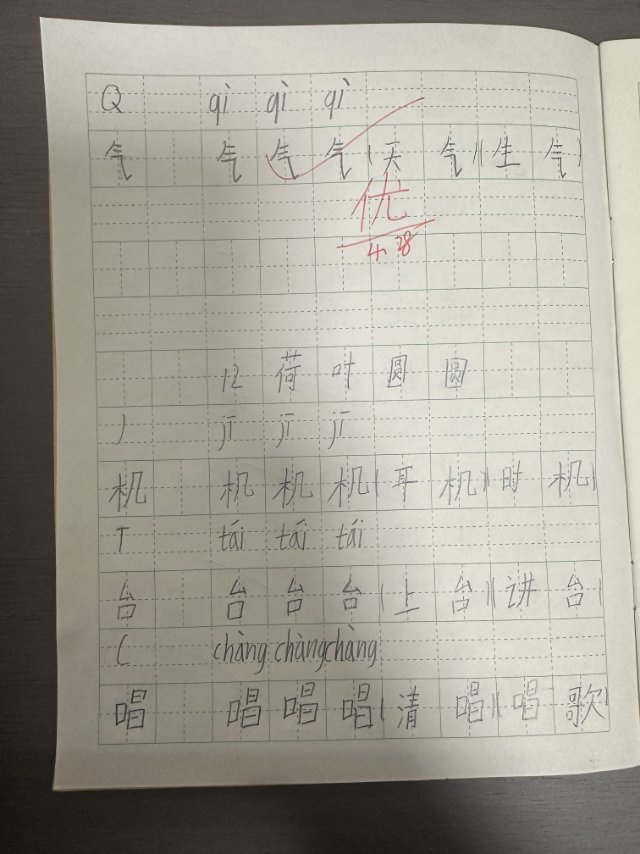 Q qì qì qì
气 气 气 气 (天 气)(生 气)
优
4.28
12 荷叶圆圆
J jī jī jī
机 机 机 机 (耳 机)(时 机)
T tái tái tái
台 台 台 台 (上 台)(讲 台)
C chàng chàng chàng
唱 唱 唱 唱 (清 唱)(唱 歌)